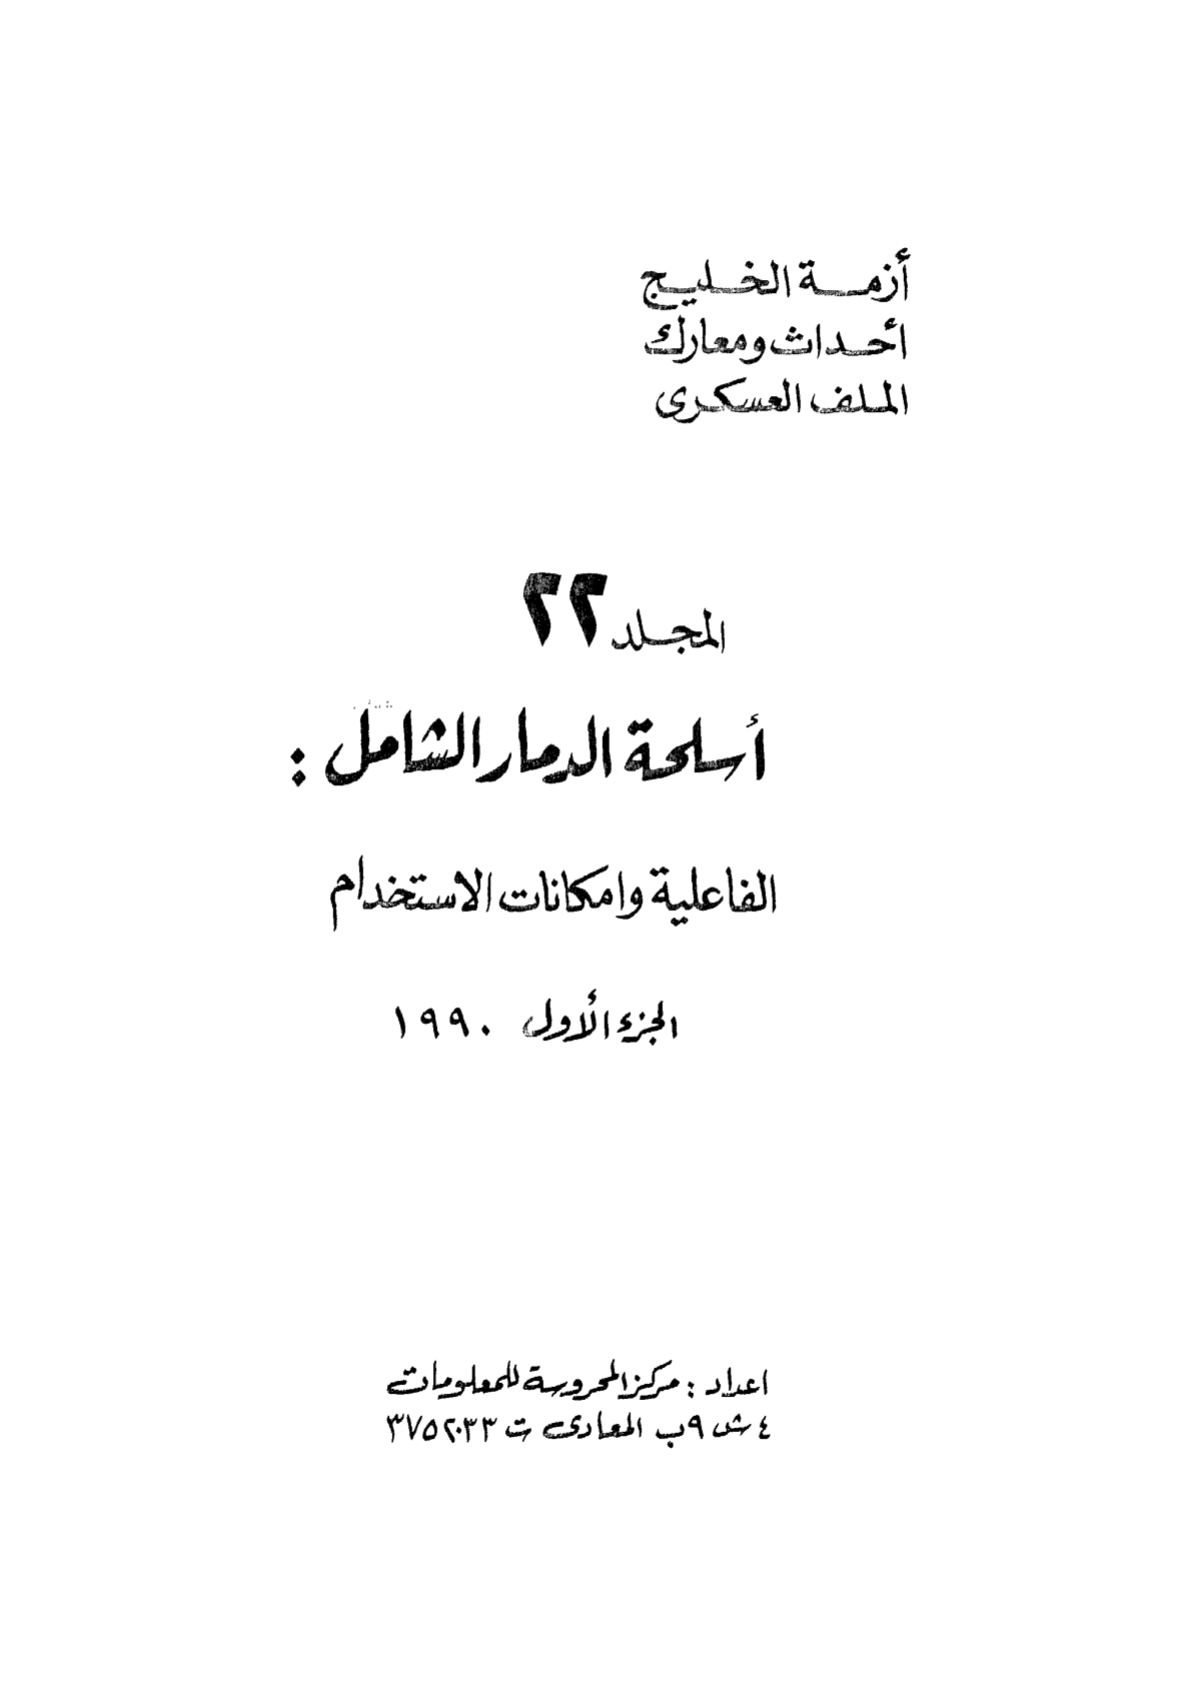 أزمة الخليج
أحداث ومعارك
الملف العسكرى
المجلد ٢٢
أسلحة الدمار الشامل :
الفاعلية وامكانات الاستخدام
الجزء الأول ١٩٩٠
اعداد : مركز المحروسة للمعلومات
٤ ش ٩ب المعادى ت ٣٧٥٢٠٣٣